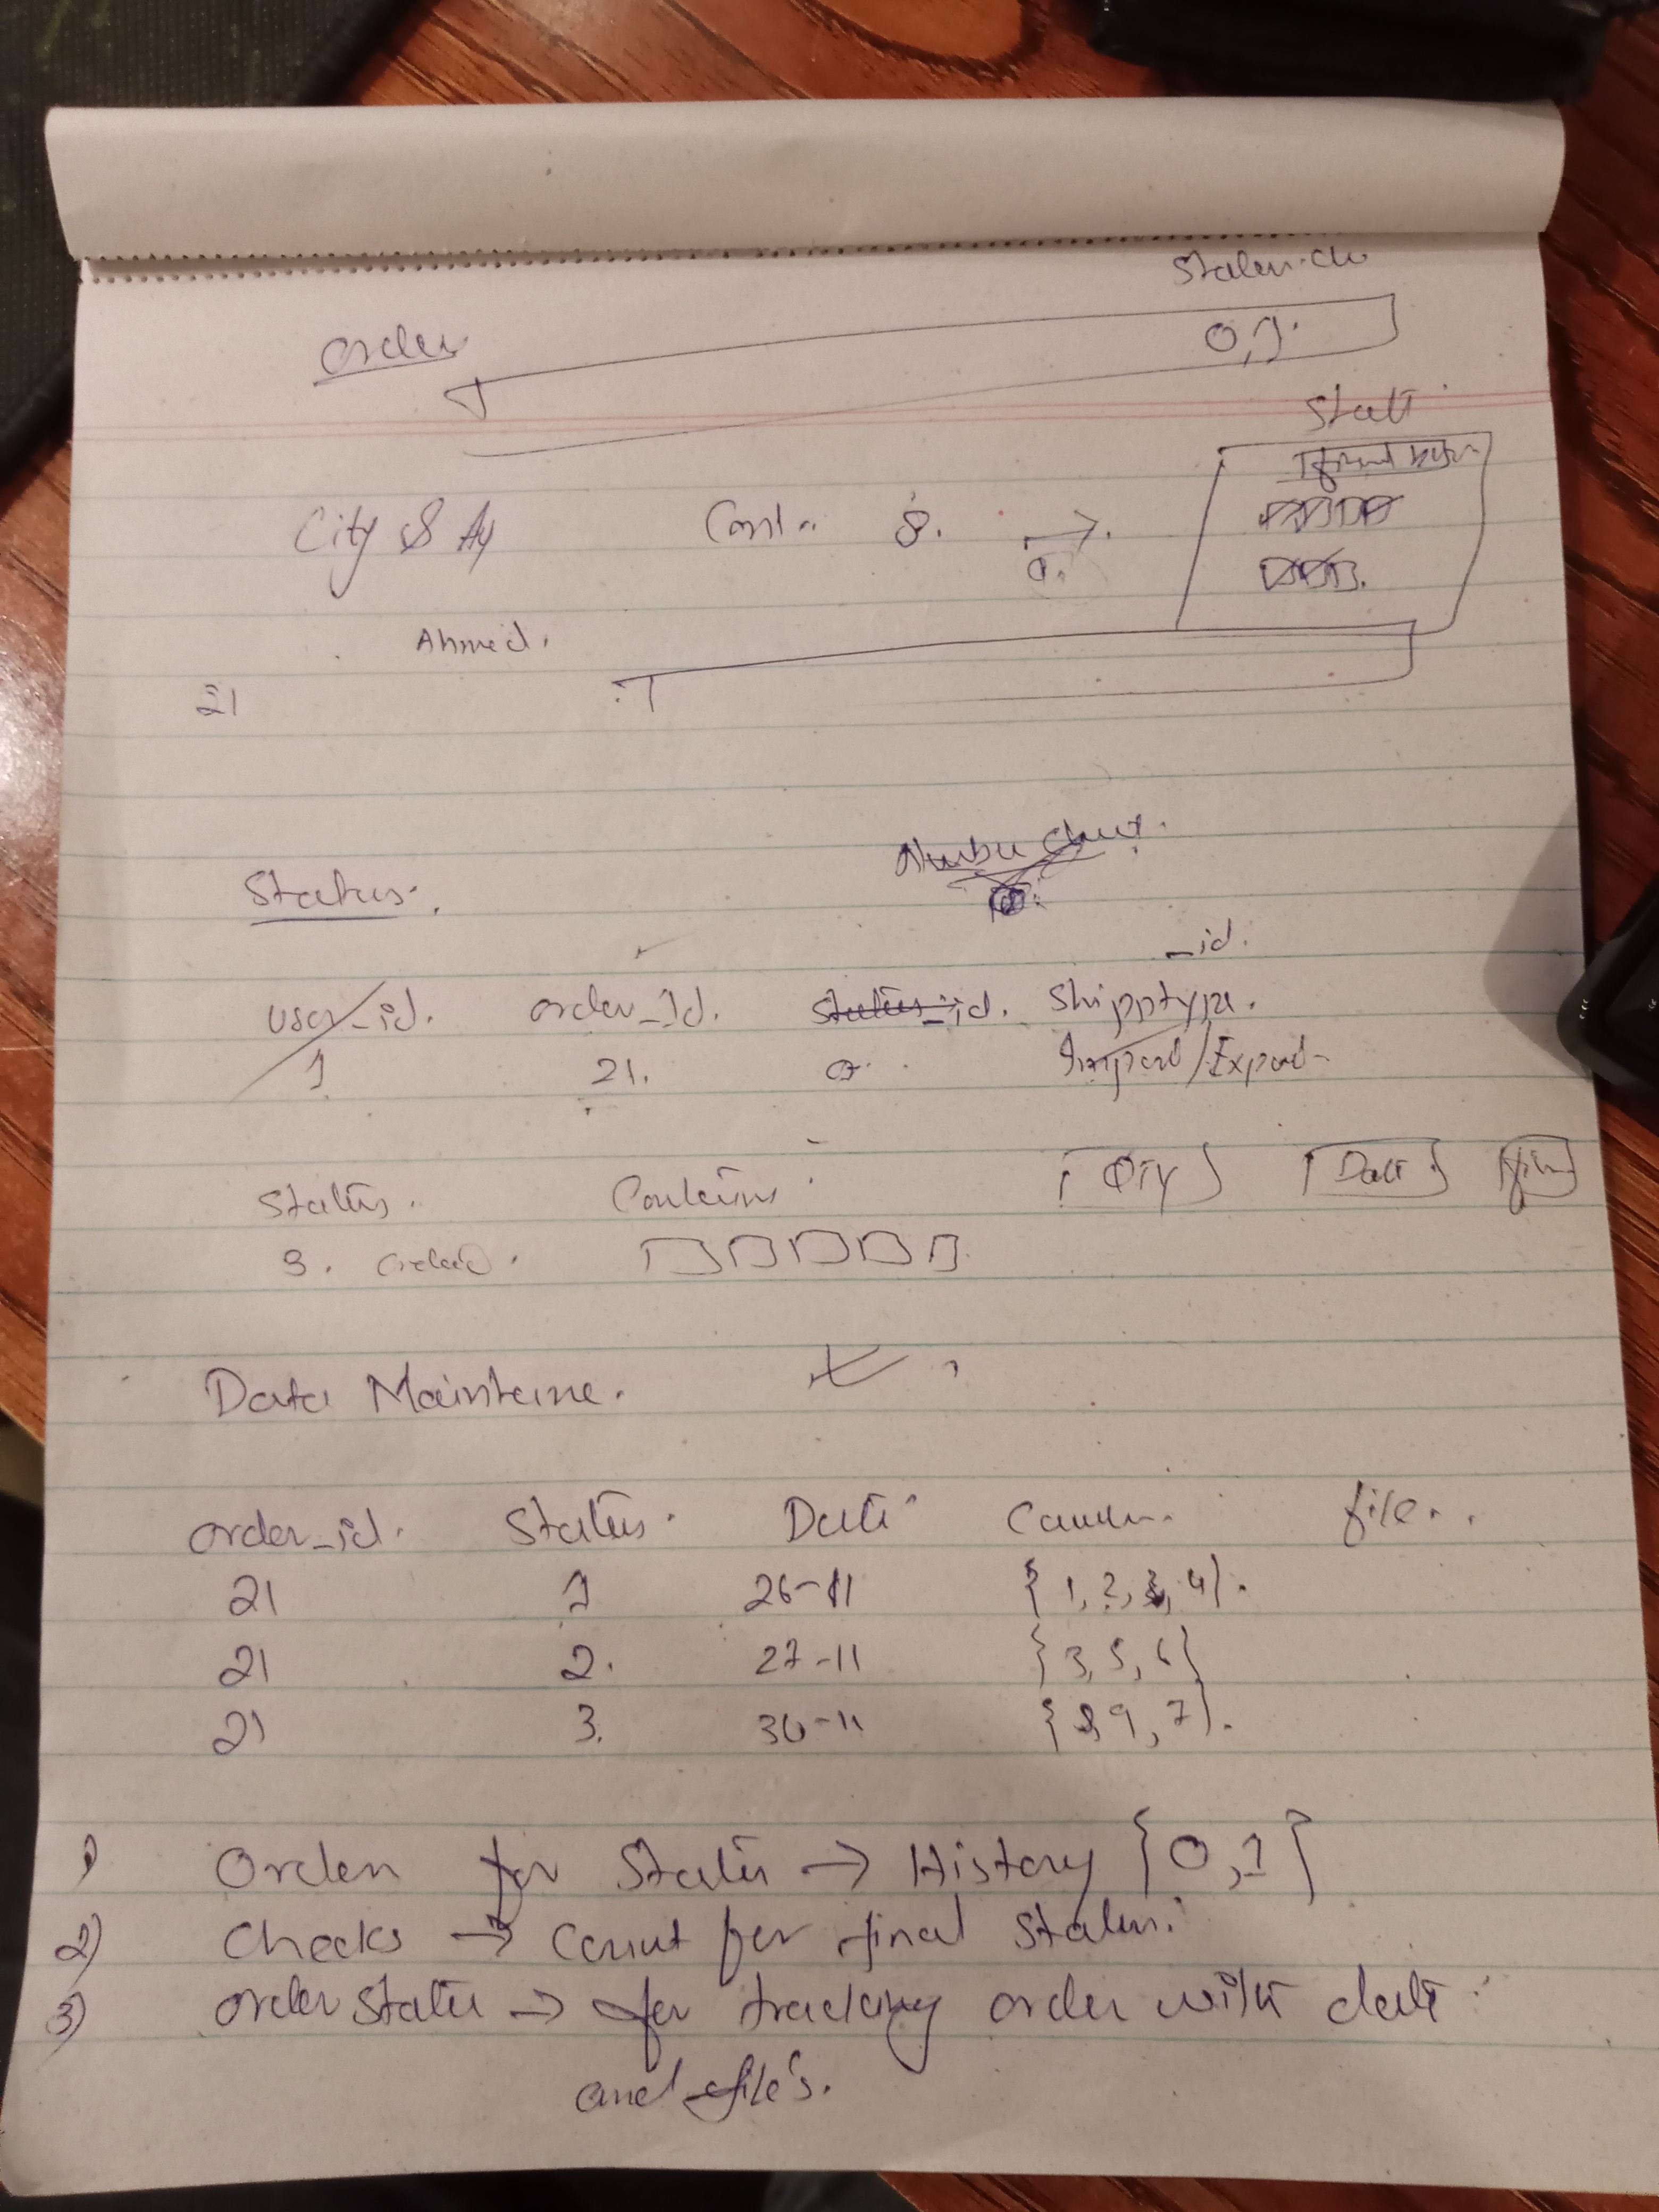 order
0,1.
City & Ay Cont.. 8.
0.
Ahmed.
21
Status.
_id.
user_id. order_id. status_id. Shipptype.
1 21. 0. Import/Export
Status. QTY Date
3.
Data Mainteine.
order_id. Status. Date file..
21 1 26-11 { 1, 2, 3, 4}.
21 2. 27-11 {3, 5, 6}
21 3. 30-11 {8, 9, 7}.
1) Order for Status → History {0,1}
2) Checks → Count for final Status.
3) order Status → for tracking order with date
and file's.